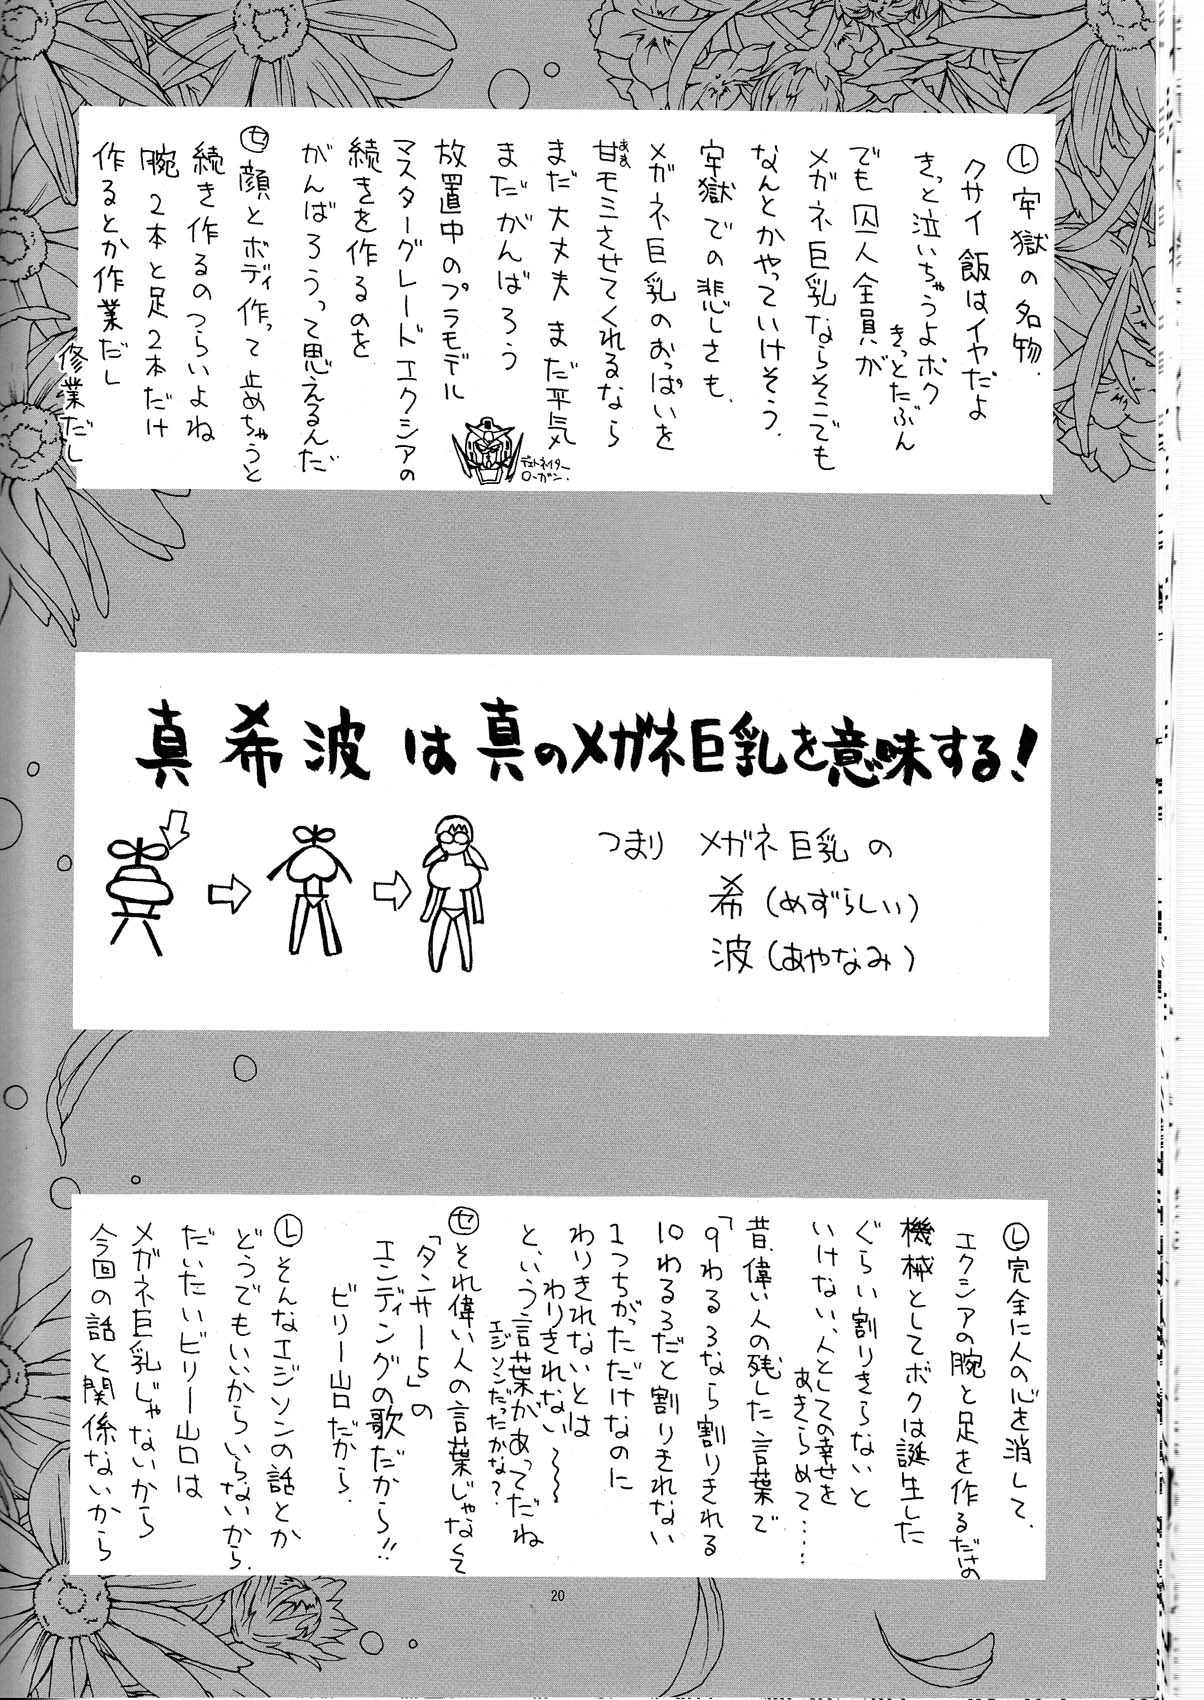 ㋹牢獄の名物
クサイ飯はイヤだよ
きっと泣いちゃうよボク
きっとたぶん
でも囚人全員が
メガネ巨乳ならそこでも
なんとかやっていけそう.
牢獄での悲しさも、
メガネ巨乳のおっぱいを
甘モミさせてくれるなら
あま
まだ大丈夫 まだ平気
まだがんばろう
放置中のプラモデル
マスターグレードエクシアの
続きを作るのを
がんばろうって思えるんだ
デトネイター
ローガン.
㋝顔とボディ作って止めちゃうと
続き作るのつらいよね
腕2本と足2本だけ
作るとか作業だし
修業だし
真希波は真のメガネ巨乳を意味する!
つまり メガネ巨乳の
希(めずらしい)
波(あやなみ)
㋹完全に人の心を消して、
エクシアの腕と足を作るだけの
機械としてボクは誕生した
ぐらい割りきらないと
いけない、人としての幸せを
あきらめて‥‥‥
昔、偉い人の残した言葉で
「9わる3なら割りきれる
10わる3だと割りきれない
1つちがっただけなのに
わりきれないとは
わりきれない〜〜
という言葉があってだね
エジソンだったかな?
㋝それ偉い人の言葉じゃなくて
「タンサー5」の
エンディングの歌だから!!
ビリー山口だから.
㋹そんなエジソンの話とか
どうでもいいからいらないから.
だいたいビリー山口は
メガネ巨乳じゃないから
今回の話と関係ないから
20